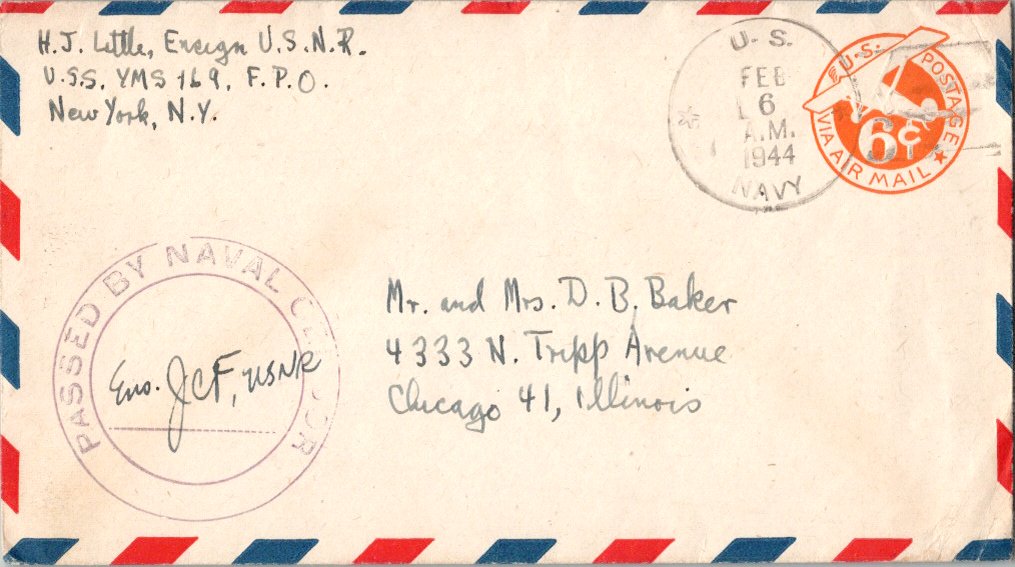 H.J. Little, Ensign U.S.N.R.
U.S.S. YMS 169, F.P.O.
New York, N.Y.
U. S.
FEB
6
A.M.
1944
NAVY
U.S. POSTAGE
6¢
VIA AIR MAIL
PASSED BY NAVAL CENSOR
Ens. JCF, USNR
Mr. and Mrs. D. B. Baker
4333 N. Tripp Avenue
Chicago 41, Illinois